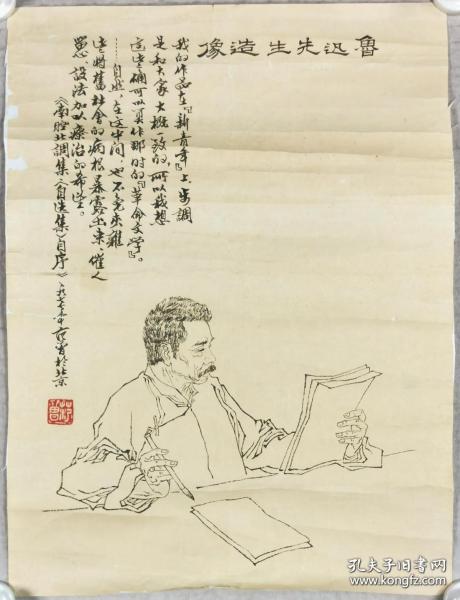 魯迅先生造像
我的作品在『新青年』上，步調
是和大家大概一致的，所以我想
这些確可以頁作那时的『革命文学』。
……自然，在这中间，也不免夹雜
些將舊社會的病根暴露出来，催人
留心，設法加以療治的希望。
《南腔北調集·〈自选集〉自序》一九七七年 范曾於北京
范曾
孔夫子旧书网
www.kongfz.com